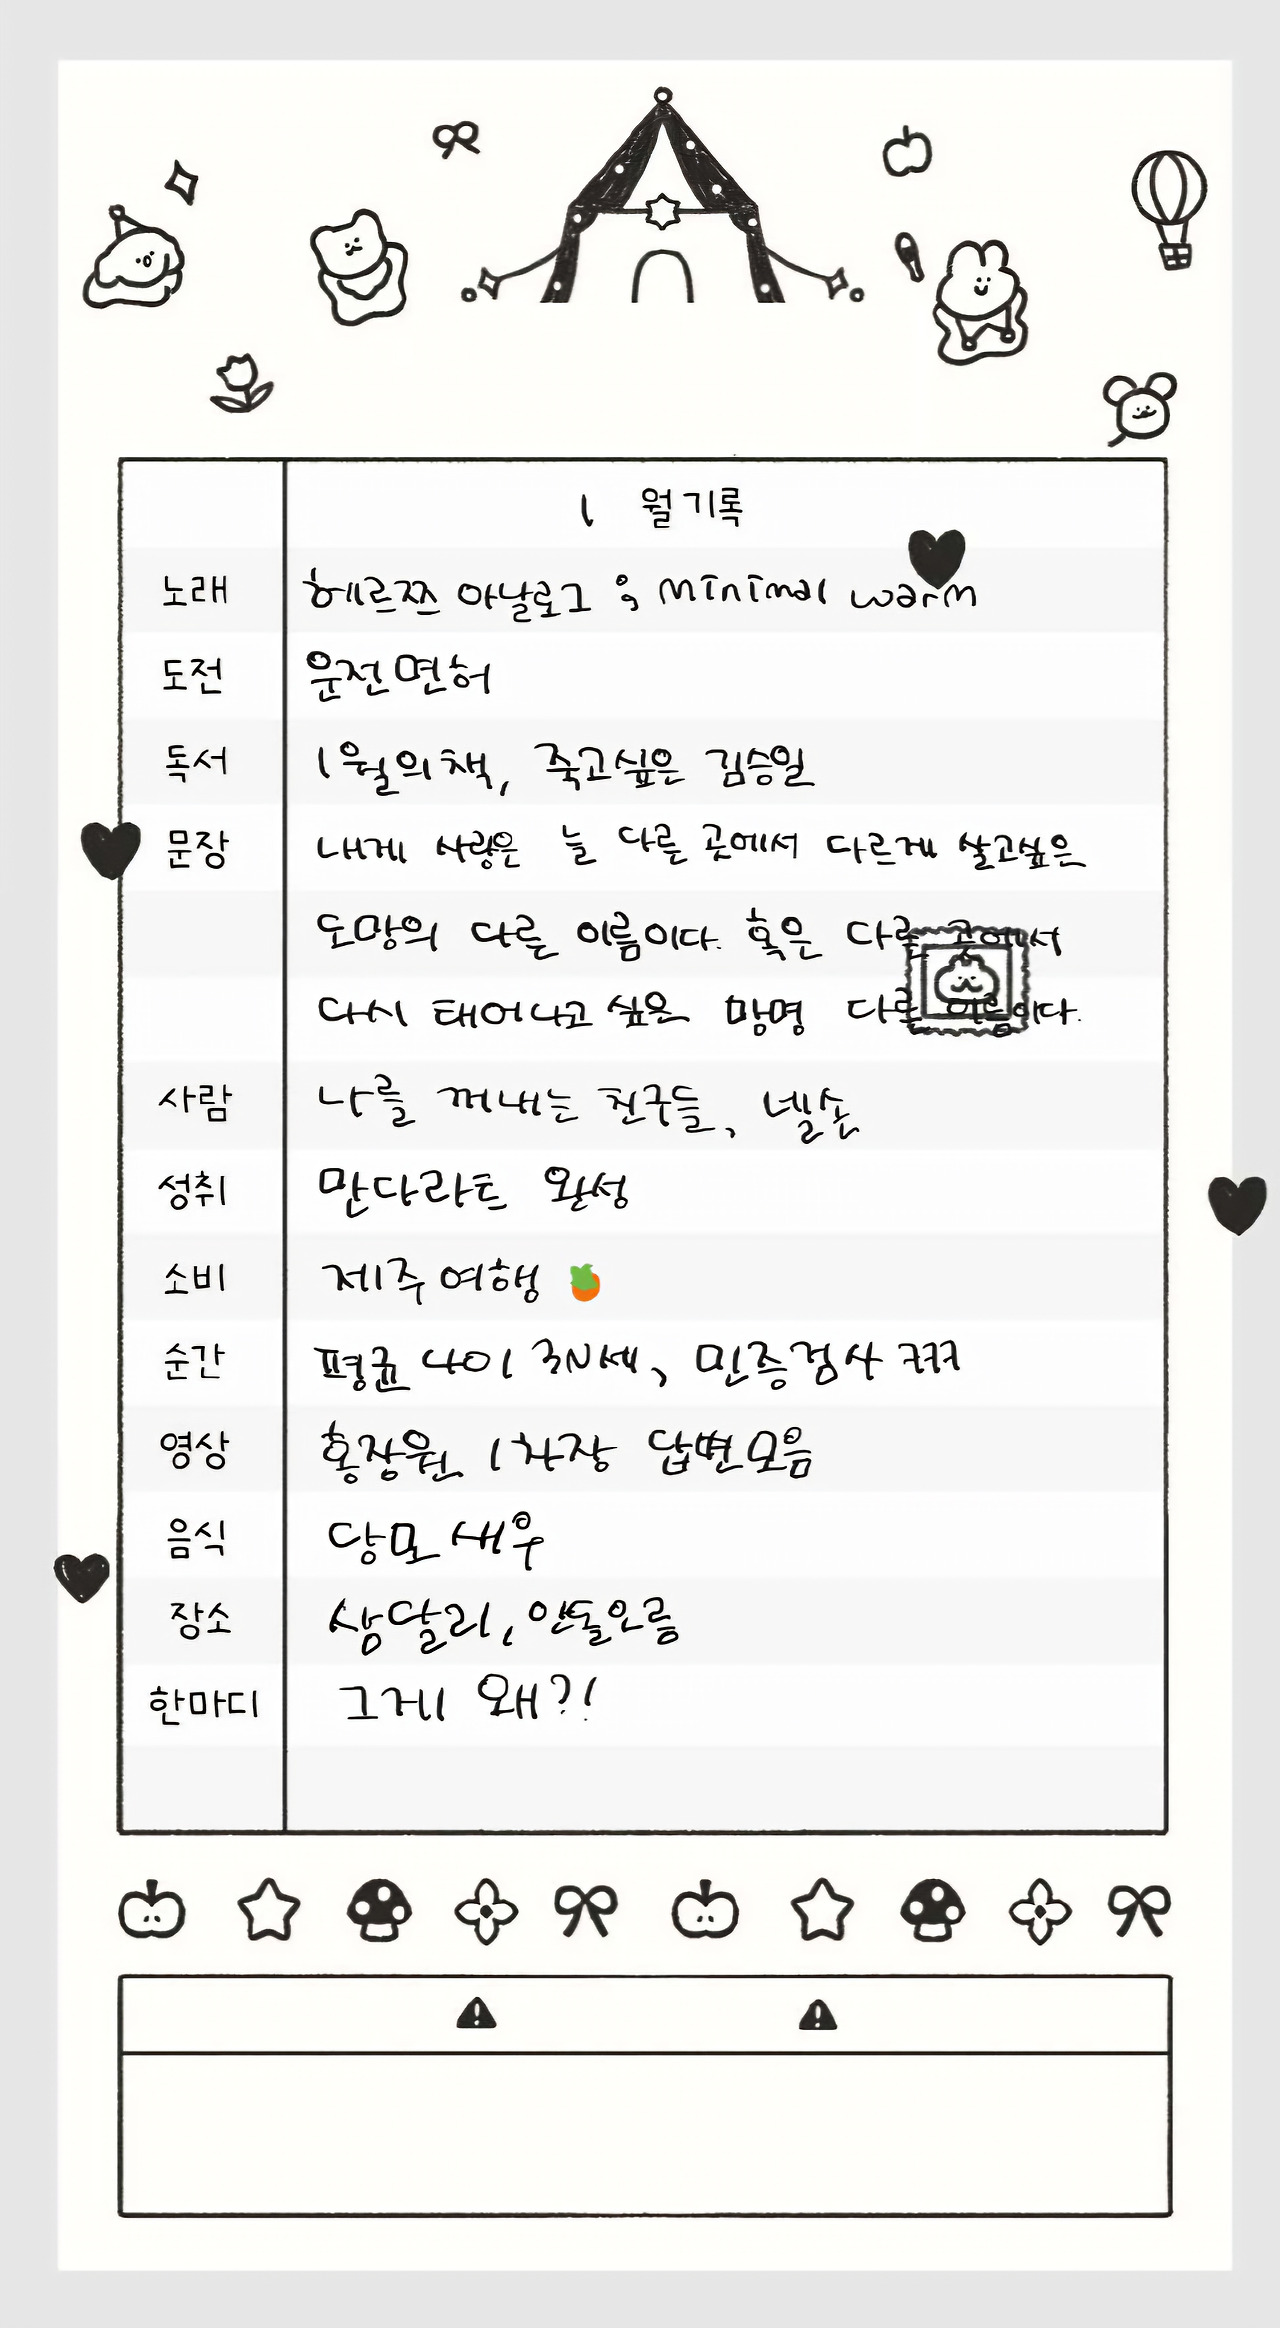 1 월기록
노래 헤르쯔 아날로그 ; minimal warm
도전 운전면허
독서 1월의책, 죽고싶은 김승일
문장 내게 사랑은 늘 다른 곳에서 다르게 살고싶은
도망의 다른 이름이다. 혹은 다른 곳에서
다시 태어나고 싶은 망명 다른 이름이다.
사람 나를 꺼내는 친구들, 넬손
성취 만다라트 완성
소비 제주여행
순간 평균 나이 3N세, 민증검사 ㅋㅋㅋ
영상 홍장원 1차장 답변모음
음식 당모새우
장소 상달리, 안돌오름
한마디 그게 왜?!